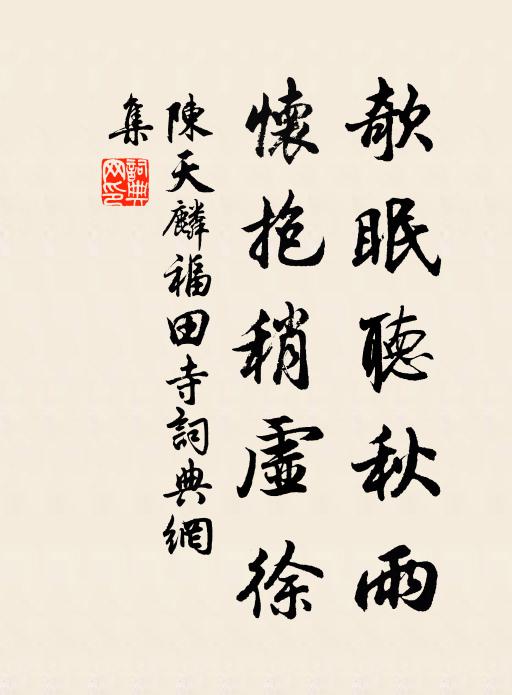 欹眠聽秋雨
懷抱稍虛徐
陳天麟福田寺詞典網
集
詞典網印